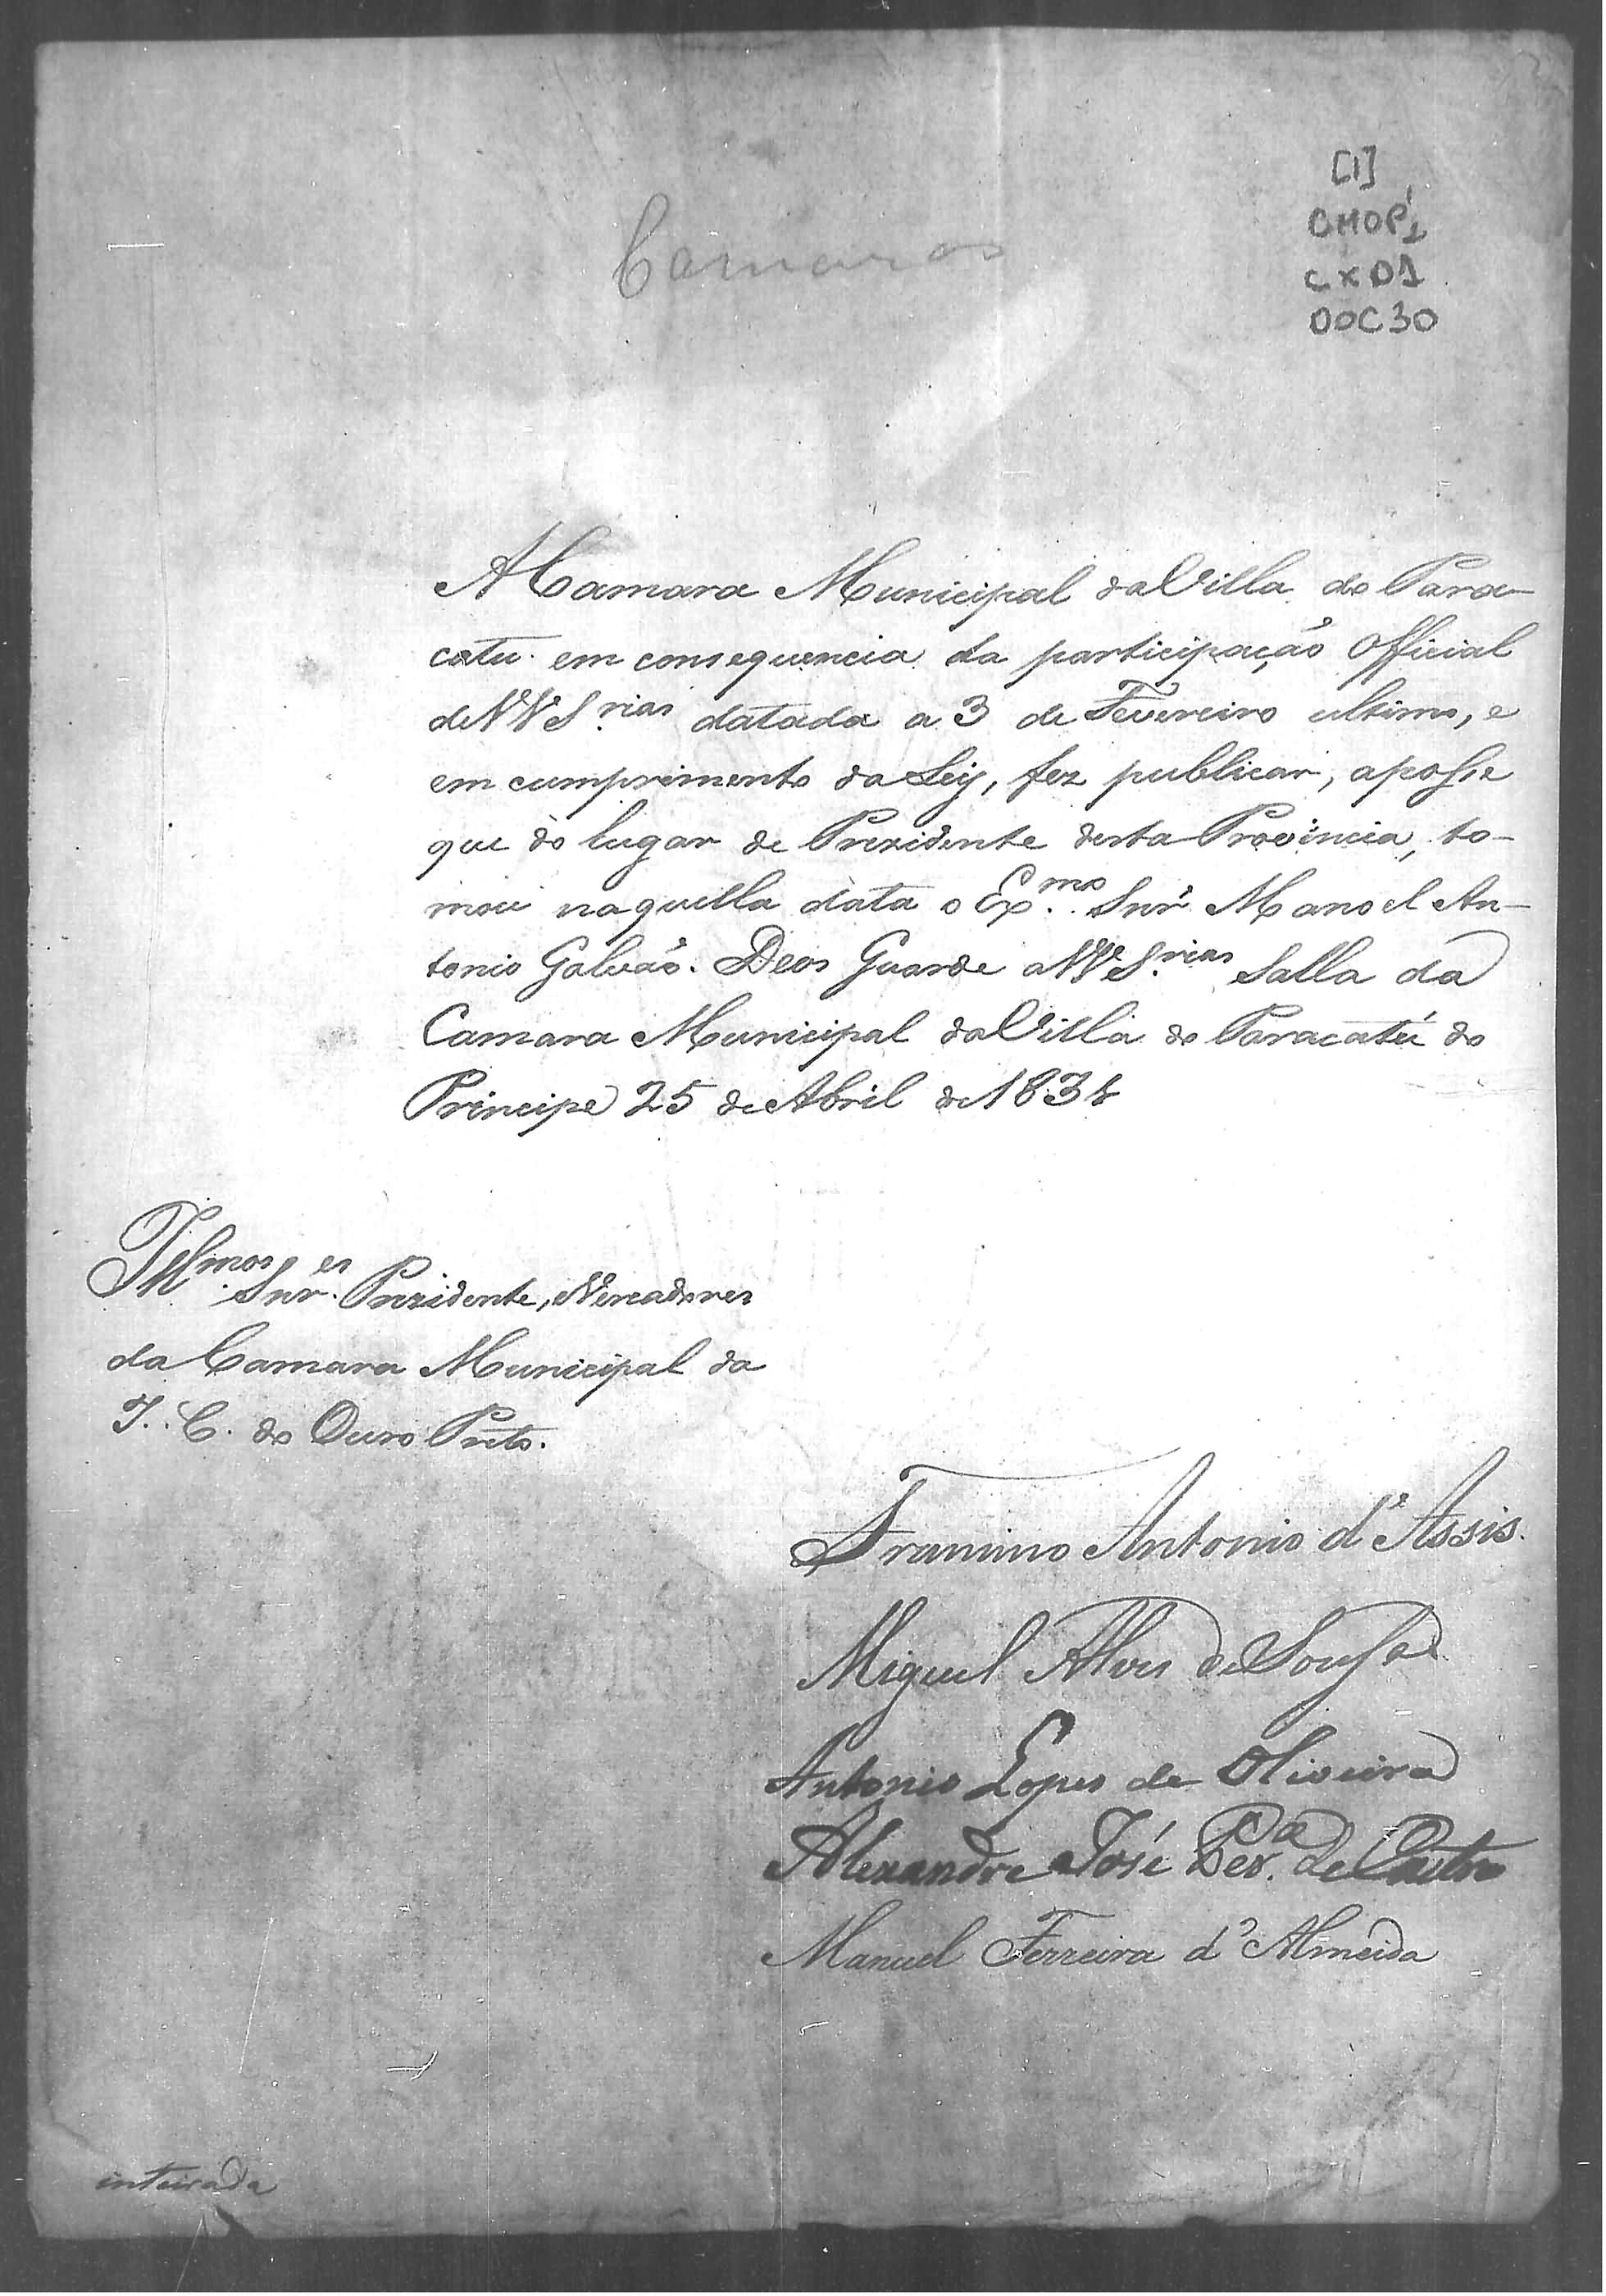 [1]
CMOP1
CX 01
DOC 30
Camaras
A Camara Municipal da Villa do Para-
catu em consequencia da participação Official
de VV Srias datada a 3 de Fevereiro ultimo, e
em cumprimento da Ley, fez publicar, aposse
que do lugar de Prezidente desta Provincia, to-
mou naquella data o Exmo. Snr. Manoel An-
tonio Galvão. Deos Guarde a VV Srias Salla da
Camara Municipal da Villa do Paracatú do
Principe 25 de Abril de 1834
Illmos. Snres. Prezidente, Vereadores
da Camara Municipal da
I. C. do Ouro Preto.
Antonio d'Assis.
Miguel Alves de Sousa
Antonio Lopes de Oliveira
Alexandre José Pera. de Castro
Manuel Ferreira d'Almeida
inteirada